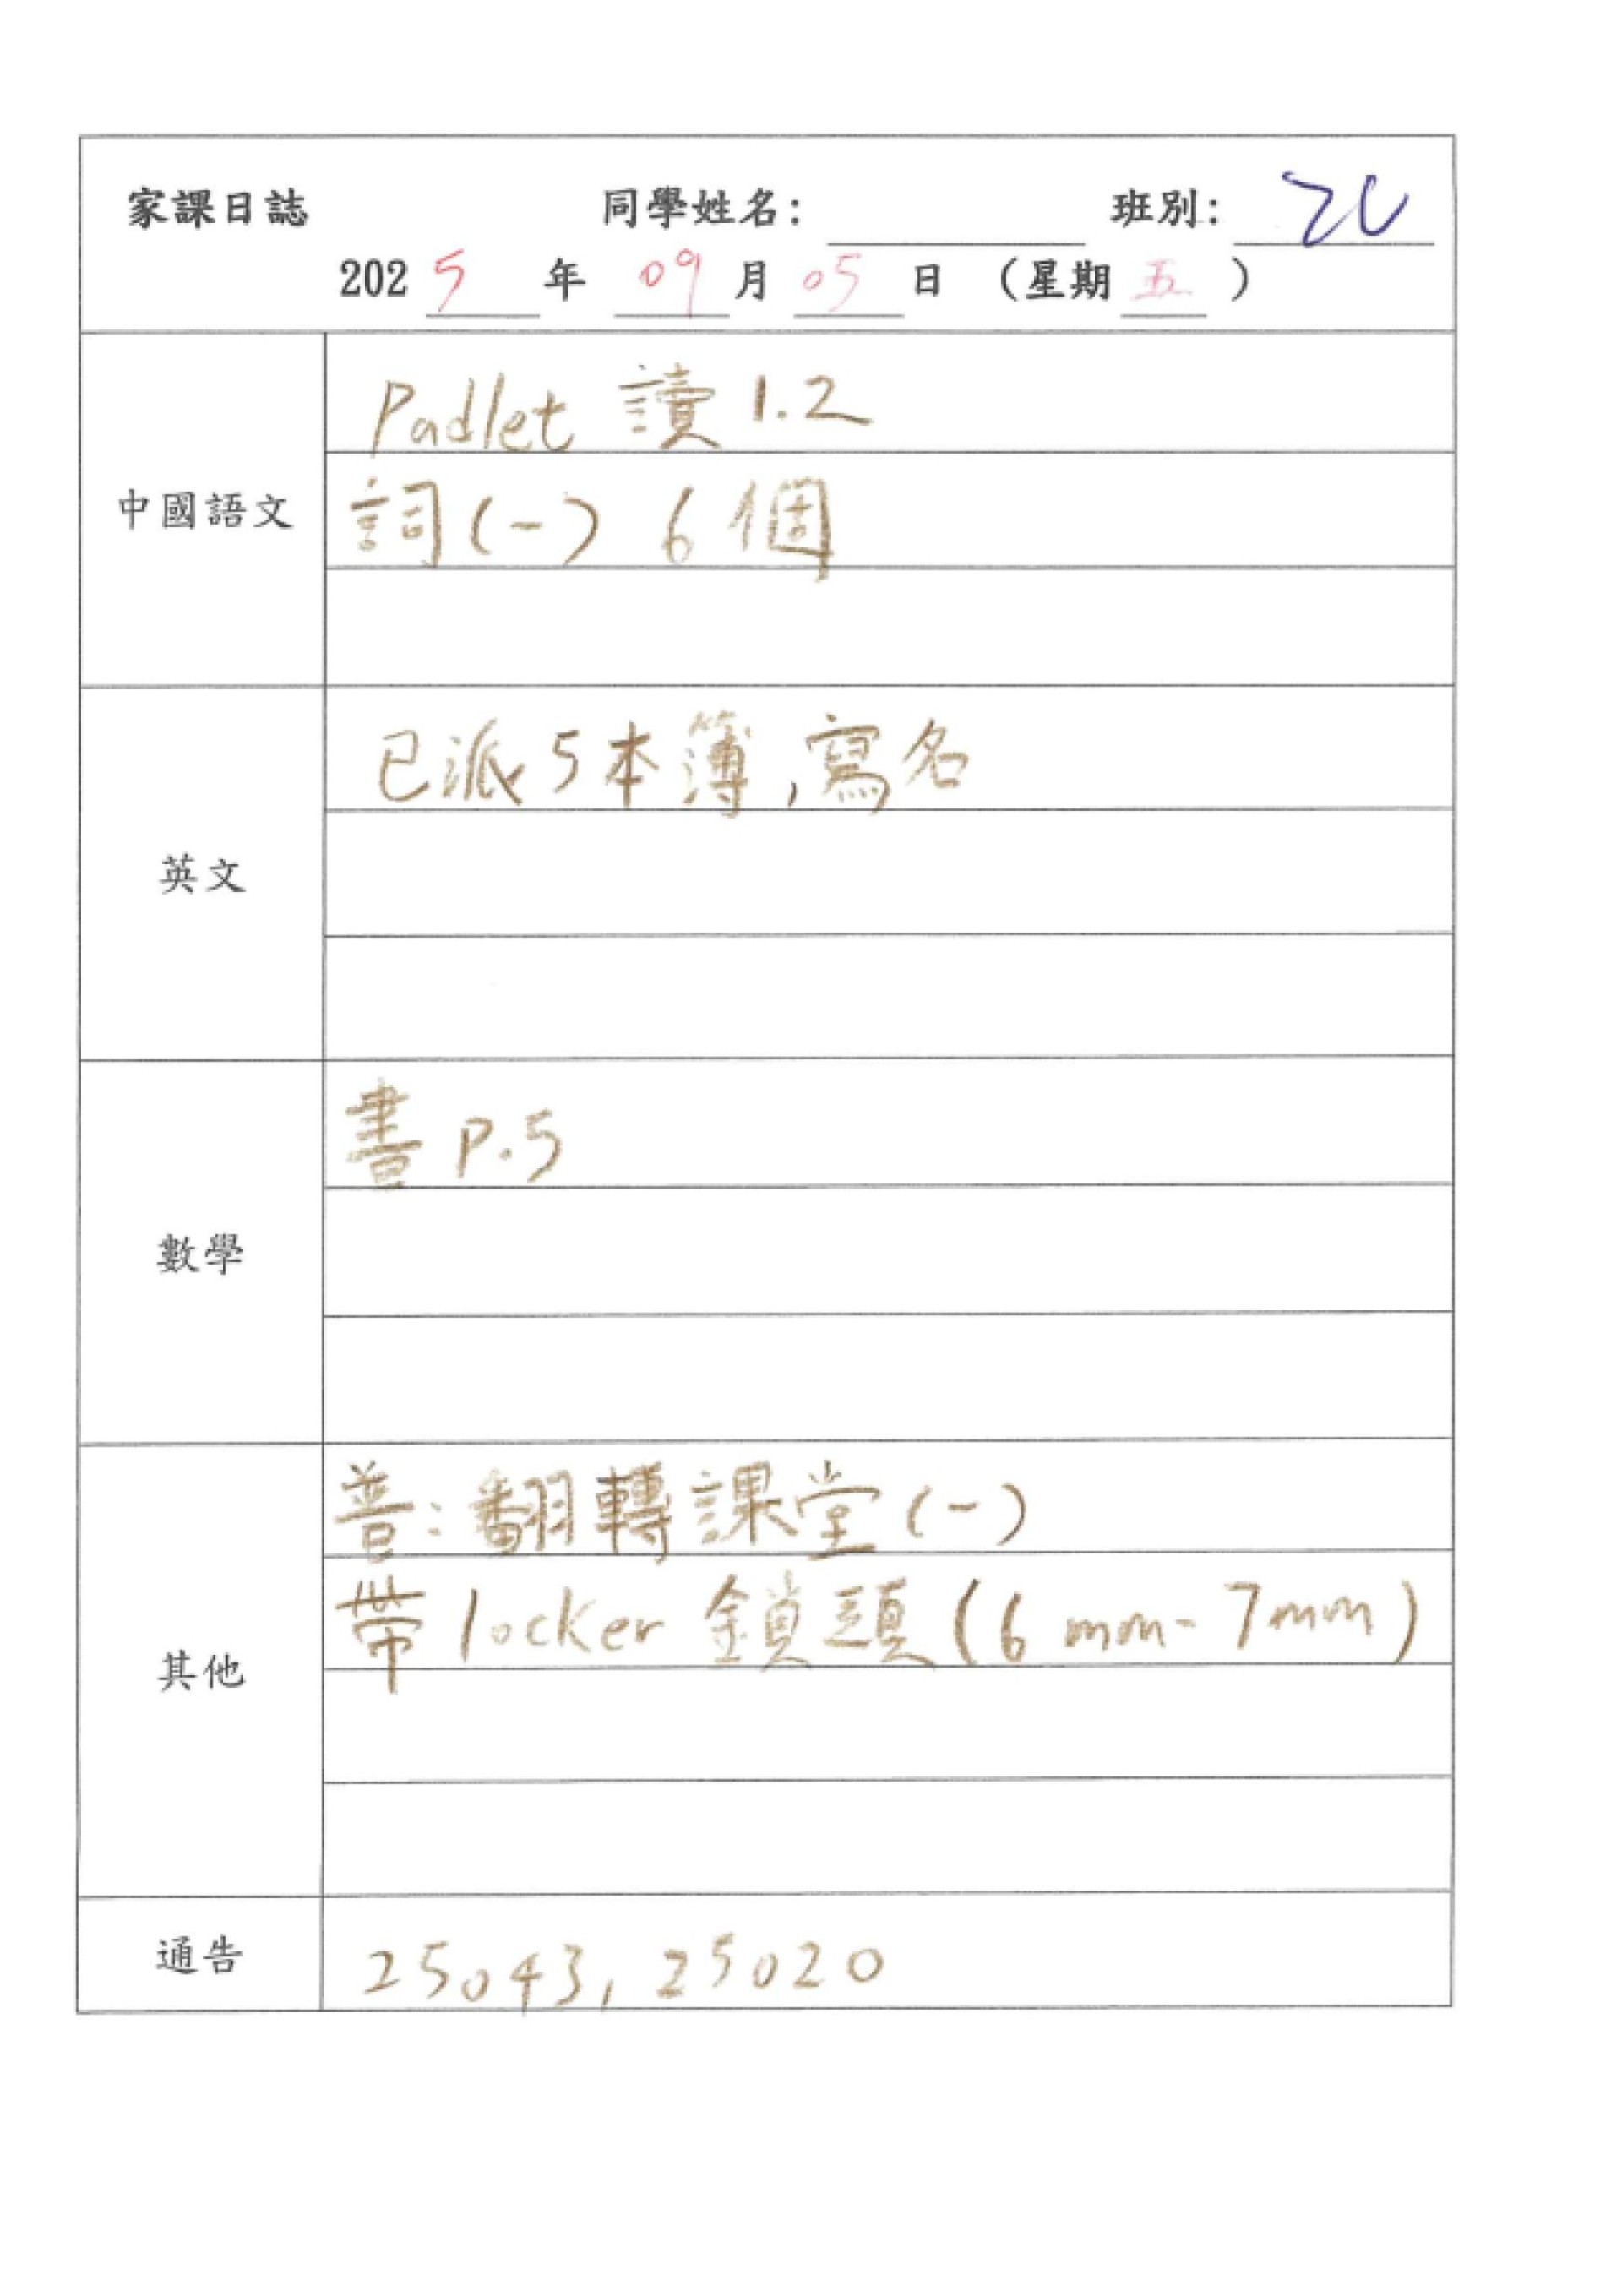 家課日誌 同學姓名： 班別：2C
2025年09月05日（星期五）
中國語文
Padlet 讀 1.2
詞(一) 6個
英文
已派5本簿,寫名
數學
書 P.5
其他
普:翻轉課堂(一)
帶 locker 鎖頭(6mm-7mm)
通告
25043, 25020